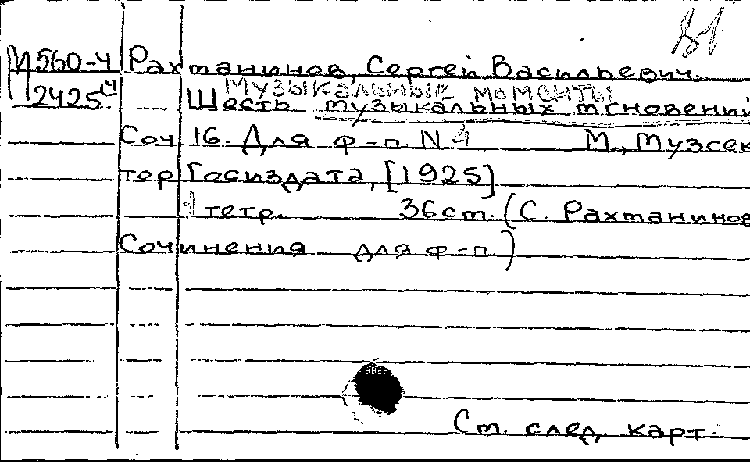 М 560-4 Рахманинов, Сергей Васильевич.
Музыкальные моменты
2425 Шесть музыкальных мгновений
Соч 16. Для ф-п N 1 М., Музсек
тор Госиздата, [1925]
1 тетр. 36 см. (С. Рахманинов
Сочинения для ф-п)
См. след. карт.